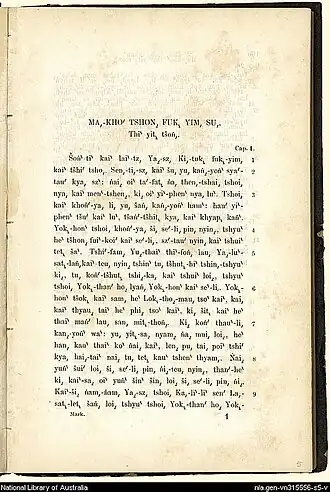 MA,-KHO' TSHON, FUK, YIM, SU,.
Thi' yit, tšoṅ,.
Cap. 1.
Šoṅ'-ti' kai' lai'-tz, Ya,-sz, Ki,-tuk, fuk,-yim, 1
kai' tšhi' tsho,. Sen,-ti,-sz, kai' šu, yu, kaṅ,-yoṅ' sya'- 2
tau' kya, sz': ṅai, oi' ta'-fat, ṅa, then,-tshai, tshoi,
nya, kai' men'-tshen,, ki, oi' yi'-phen' nya, lu'. Tshoi, 3
kai' khoṅ'-ya, li, yu, šaṅ, kaṅ,-yoṅ' ham': han' yi'-
phen' tšu' kai' lu', tšaṅ'-tšhit, kya, kai' khyap, kaṅ'.
Yok,-hon' tshoi, khoṅ'-ya, ši, se'-li, pin, nyin,, tshyu' 4
he' tšhon, fui'-koi' kai' se'-li,, sz'-tau' nyin, kai' tshui'
tet, ša'. Tshi'-fam, Yu,-thai' thi'-foṅ, lau, Ya,-lu'- 5
sat,-laṅ, kai'-teu, nyin, tshin' tu, tšhut,-hi' tshin,-tshyu'
ki,, tu, koṅ'-tšhut, tshi,-ka, kai' tshui' loi,, tshyu'
tshoi, Yok,-than' ho, lyaṅ, Yok,-hon' kai' se'-li,. Yok,- 6
hon' tšok, kai' sam, he' Lok,-tho,-mau, tso' kai', kai,
kai' thyau, tai' he' phi, tso' kai', ki, šit, kai' he'
thai' maṅ' lau, san, mit,-thoṅ,. Ki, koṅ' thau'-li, 7
kan,-yoṅ' wa': yu, yit,-sa, nyam, ṅa, mui, loi,, he'
han, kau' thai' ko' ṅai, kai', len, pu, tai, poi' tšhi'
kya, hai,-tai' nai, tu, tet, kau' tshen' thyam,. Ṅai, 8
yuṅ' šui' loi, ši, se'-li, pin, ṅi,-teu, nyin,, thar'-he'
ki, kai'-sa, oi' yuṅ' šin' šin, loi, ši, se'-li, pin, ṅi,.
Kai'-ši, ṅam,-ṅam, Ya,-sz, tshoi, Ka,-li'-li' sen' La,- 9
sat,-let, šaṅ, loi, tshyu' tshoi, Yok,-than' ho, Yok,-
Mark. 1
5
National Library of Australia
nla.gen-vn315556-s5-v